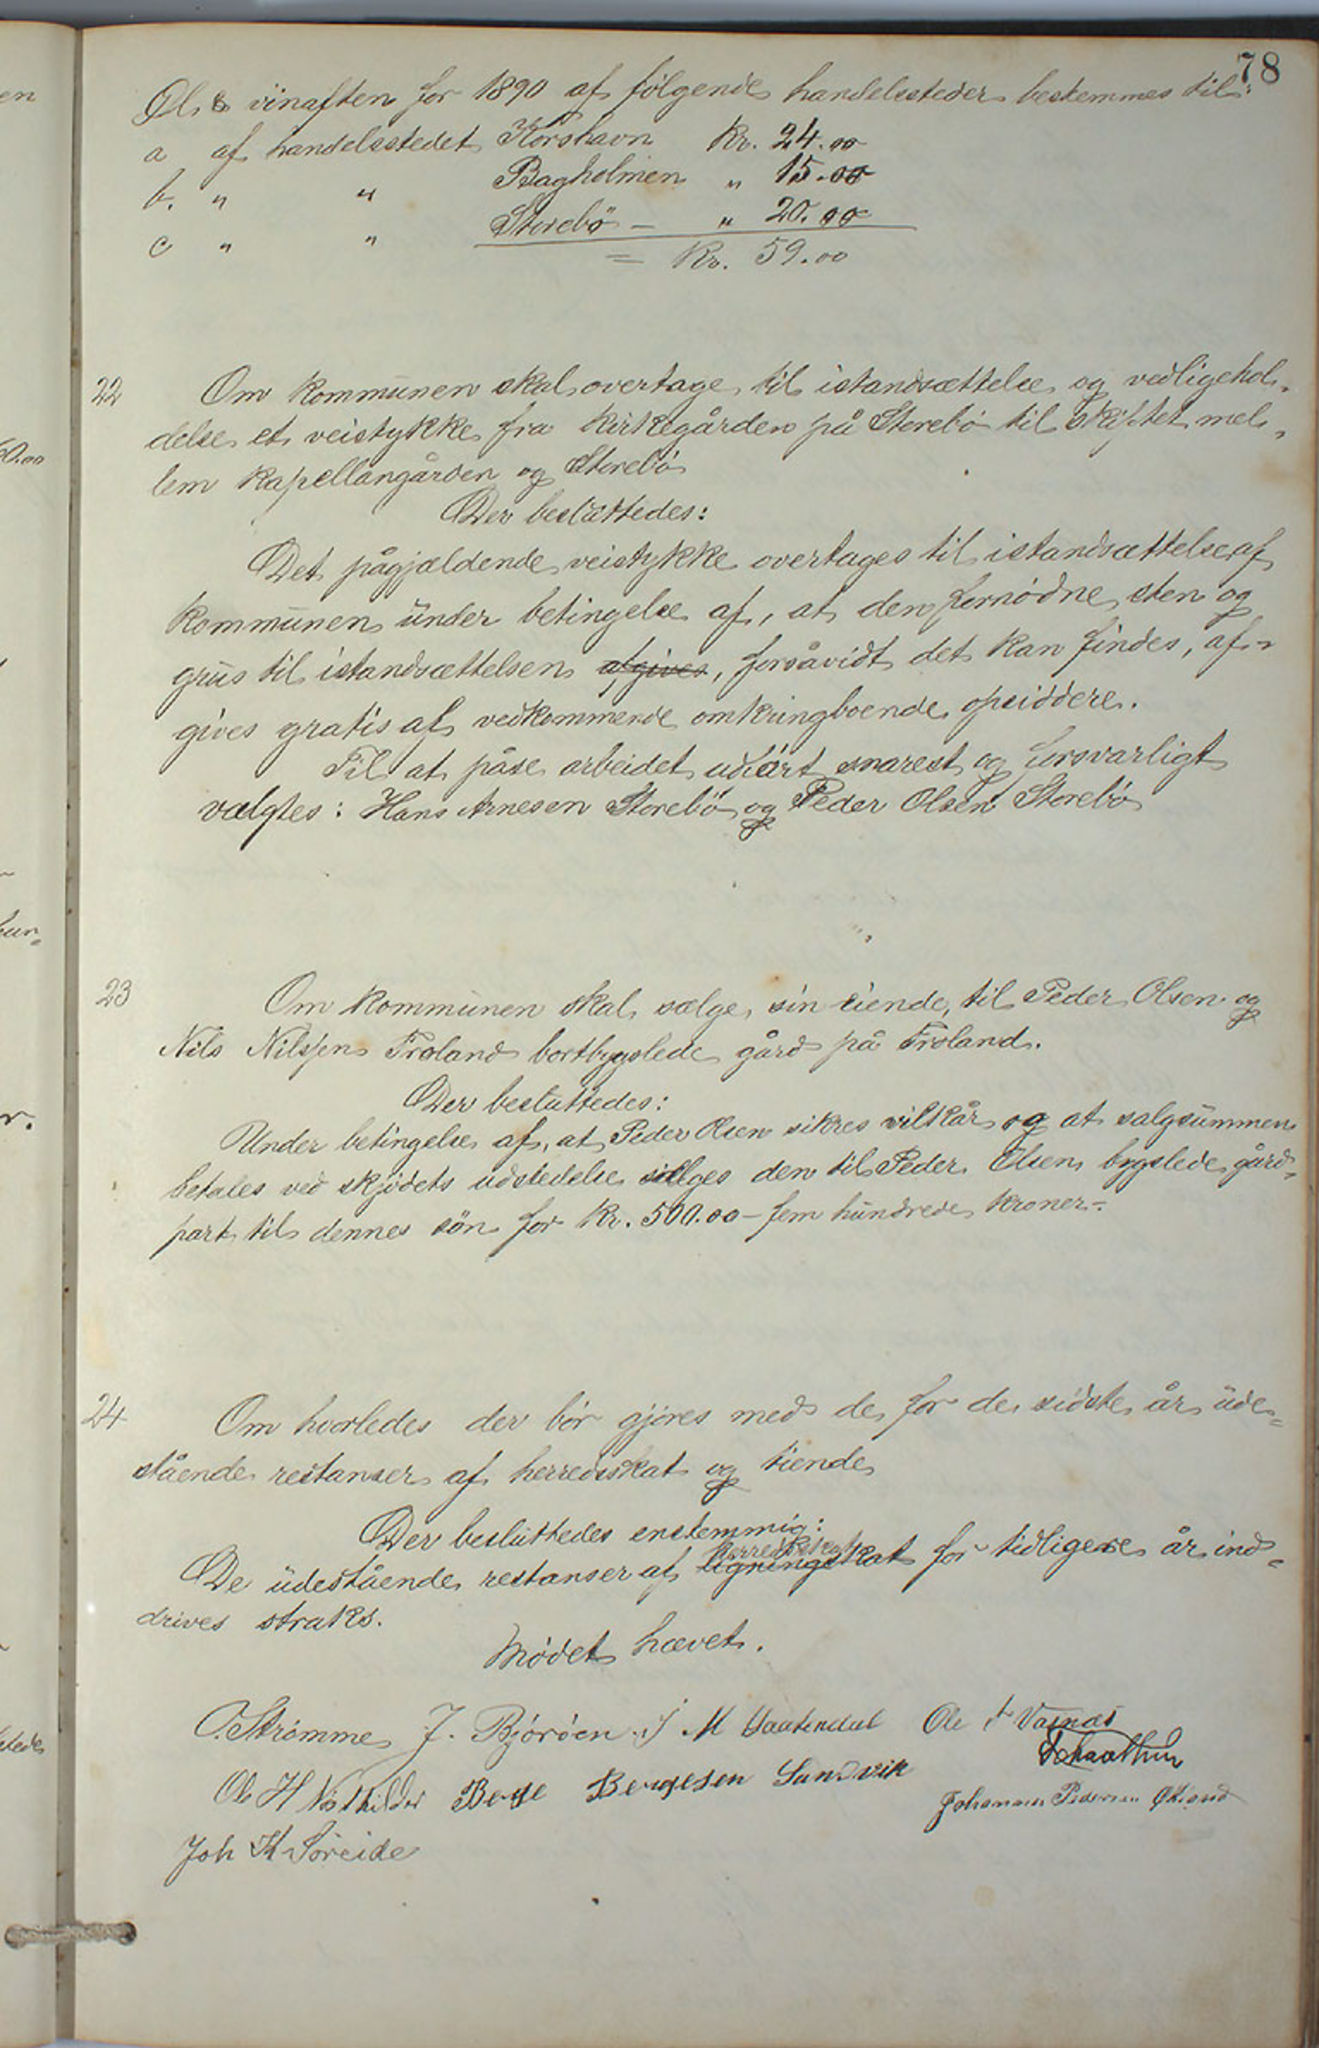 78
Øl & vinaften for 1890 af følgende handelssteder bestemmes til:
a af handelsstedet Korshavn Kr. 24.00
b. " " Bagholmen " 15.00
c " " Storebö — " 20.00
= Kr. 59.00
22 Om kommunen skal overtage til istandsættelse og vedligehol-
delse et veistykke fra kirkegården på Storebö til skiftet mel-
lem kapellangården og Storebö
Der besluttedes:
Det pågjældende veistykke overtages til istandsættelse af
kommunen under betingelse af, at den fornødne sten og
grus til istandsættelsen afgives, forsåvidt det kan findes, af-
gives gratis af vedkommende omkringboende opsiddere.
Til at påse arbeidet udført snarest og forsvarligt
valgtes: Hans Arnesen Storebö og Peder Olsen Storebö
23 Om kommunen skal sælge sin eiende, til Peder Olsen og
Nils Nilssen Froland bortbygslede gård på Froland.
Der besluttedes:
Under betingelse af, at Peder Olsen sikres vilkår og at salgsummen
betales ved skjødets udstedelse sælges den til Peder Olsen bygslede gård-
part til dennes sön for Kr. 500.00 – fem hundrede kroner –.
24 Om hvorledes der bör gjöres med de for de sidste år ude-
stående restanser af herredsskat og tiende
Der besluttedes enstemmig:
herredsskat
De udestående restanser af ligningsskat for tidligere år ind-
drives straks.
Mødet hævet.
O. Strömme J. Björöen J M Ole Vasnes
Ole H Berge Bergesen Sandvik
Johannes Pedersen
Joh H Söreide